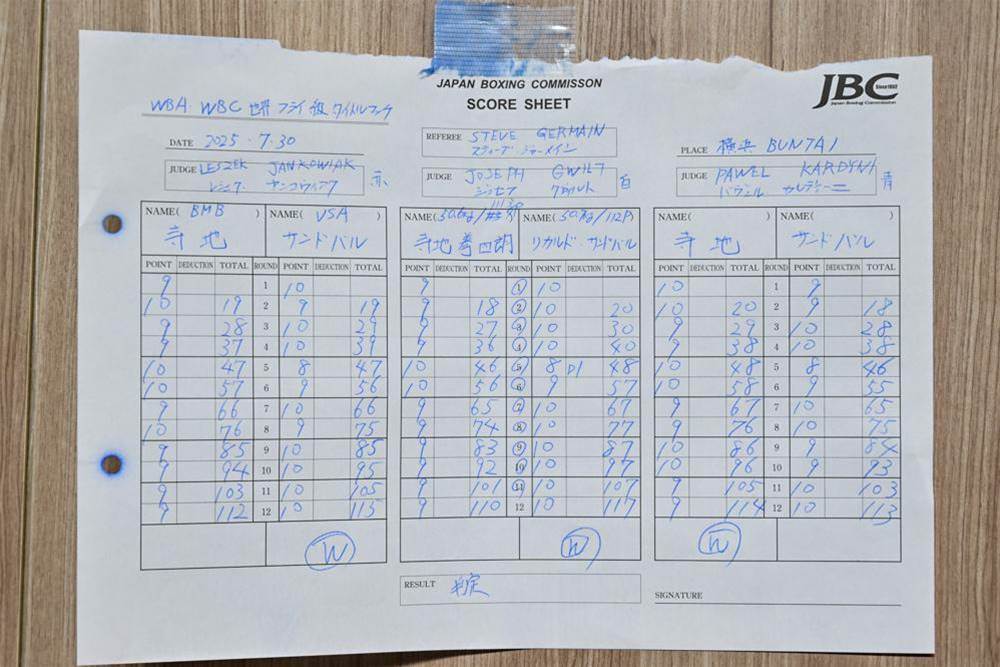 JAPAN BOXING COMMISSON
SCORE SHEET
JBC Since1952
Japan Boxing Commission
WBA WBC 世界フライ級タイトルマッチ
DATE 2025・7.30
REFEREE STEVE GERMAIN
スティーブ・ジャーメイン
PLACE 横浜 BUNTAI
JUDGE LESZEK JANKOWIAK 赤
レシェク ヤンコヴィアク
JUDGE JOSEPH GWILT 白
ジョセフ グウィルト
JUDGE PAWEL KARDYNI 青
パウェル カルディーニ
NAME( BMB ) NAME( USA ) NAME(50.6kg/ NAME(50.7kg/112P) NAME( ) NAME( )
寺地 サンドバル 寺地拳四朗 リカルド・サンドバル 寺地 サンドバル
POINT DEDUCTION TOTAL ROUND POINT DEDUCTION TOTAL POINT DEDUCTION TOTAL ROUND POINT DEDUCTION TOTAL POINT DEDUCTION TOTAL ROUND POINT DEDUCTION TOTAL
9 1 10 9 1 10 10 1 9
10 19 2 9 19 9 18 2 10 20 10 20 2 9 18
9 28 3 10 29 9 27 3 10 30 9 29 3 10 28
9 37 4 10 39 9 36 4 10 40 9 38 4 10 38
10 47 5 8 47 10 46 5 8 D1 48 10 48 5 8 46
10 57 6 9 56 10 56 6 9 57 10 58 6 9 55
9 66 7 10 66 9 65 7 10 67 9 67 7 10 65
10 76 8 9 75 9 74 8 10 77 9 76 8 10 75
9 85 9 10 85 9 83 9 10 87 10 86 9 9 84
9 94 10 10 95 9 92 10 10 97 10 96 10 9 93
9 103 11 10 105 9 101 11 10 107 9 105 11 10 103
9 112 12 10 115 9 110 12 10 117 9 114 12 10 113
W W W
RESULT 判定
SIGNATURE